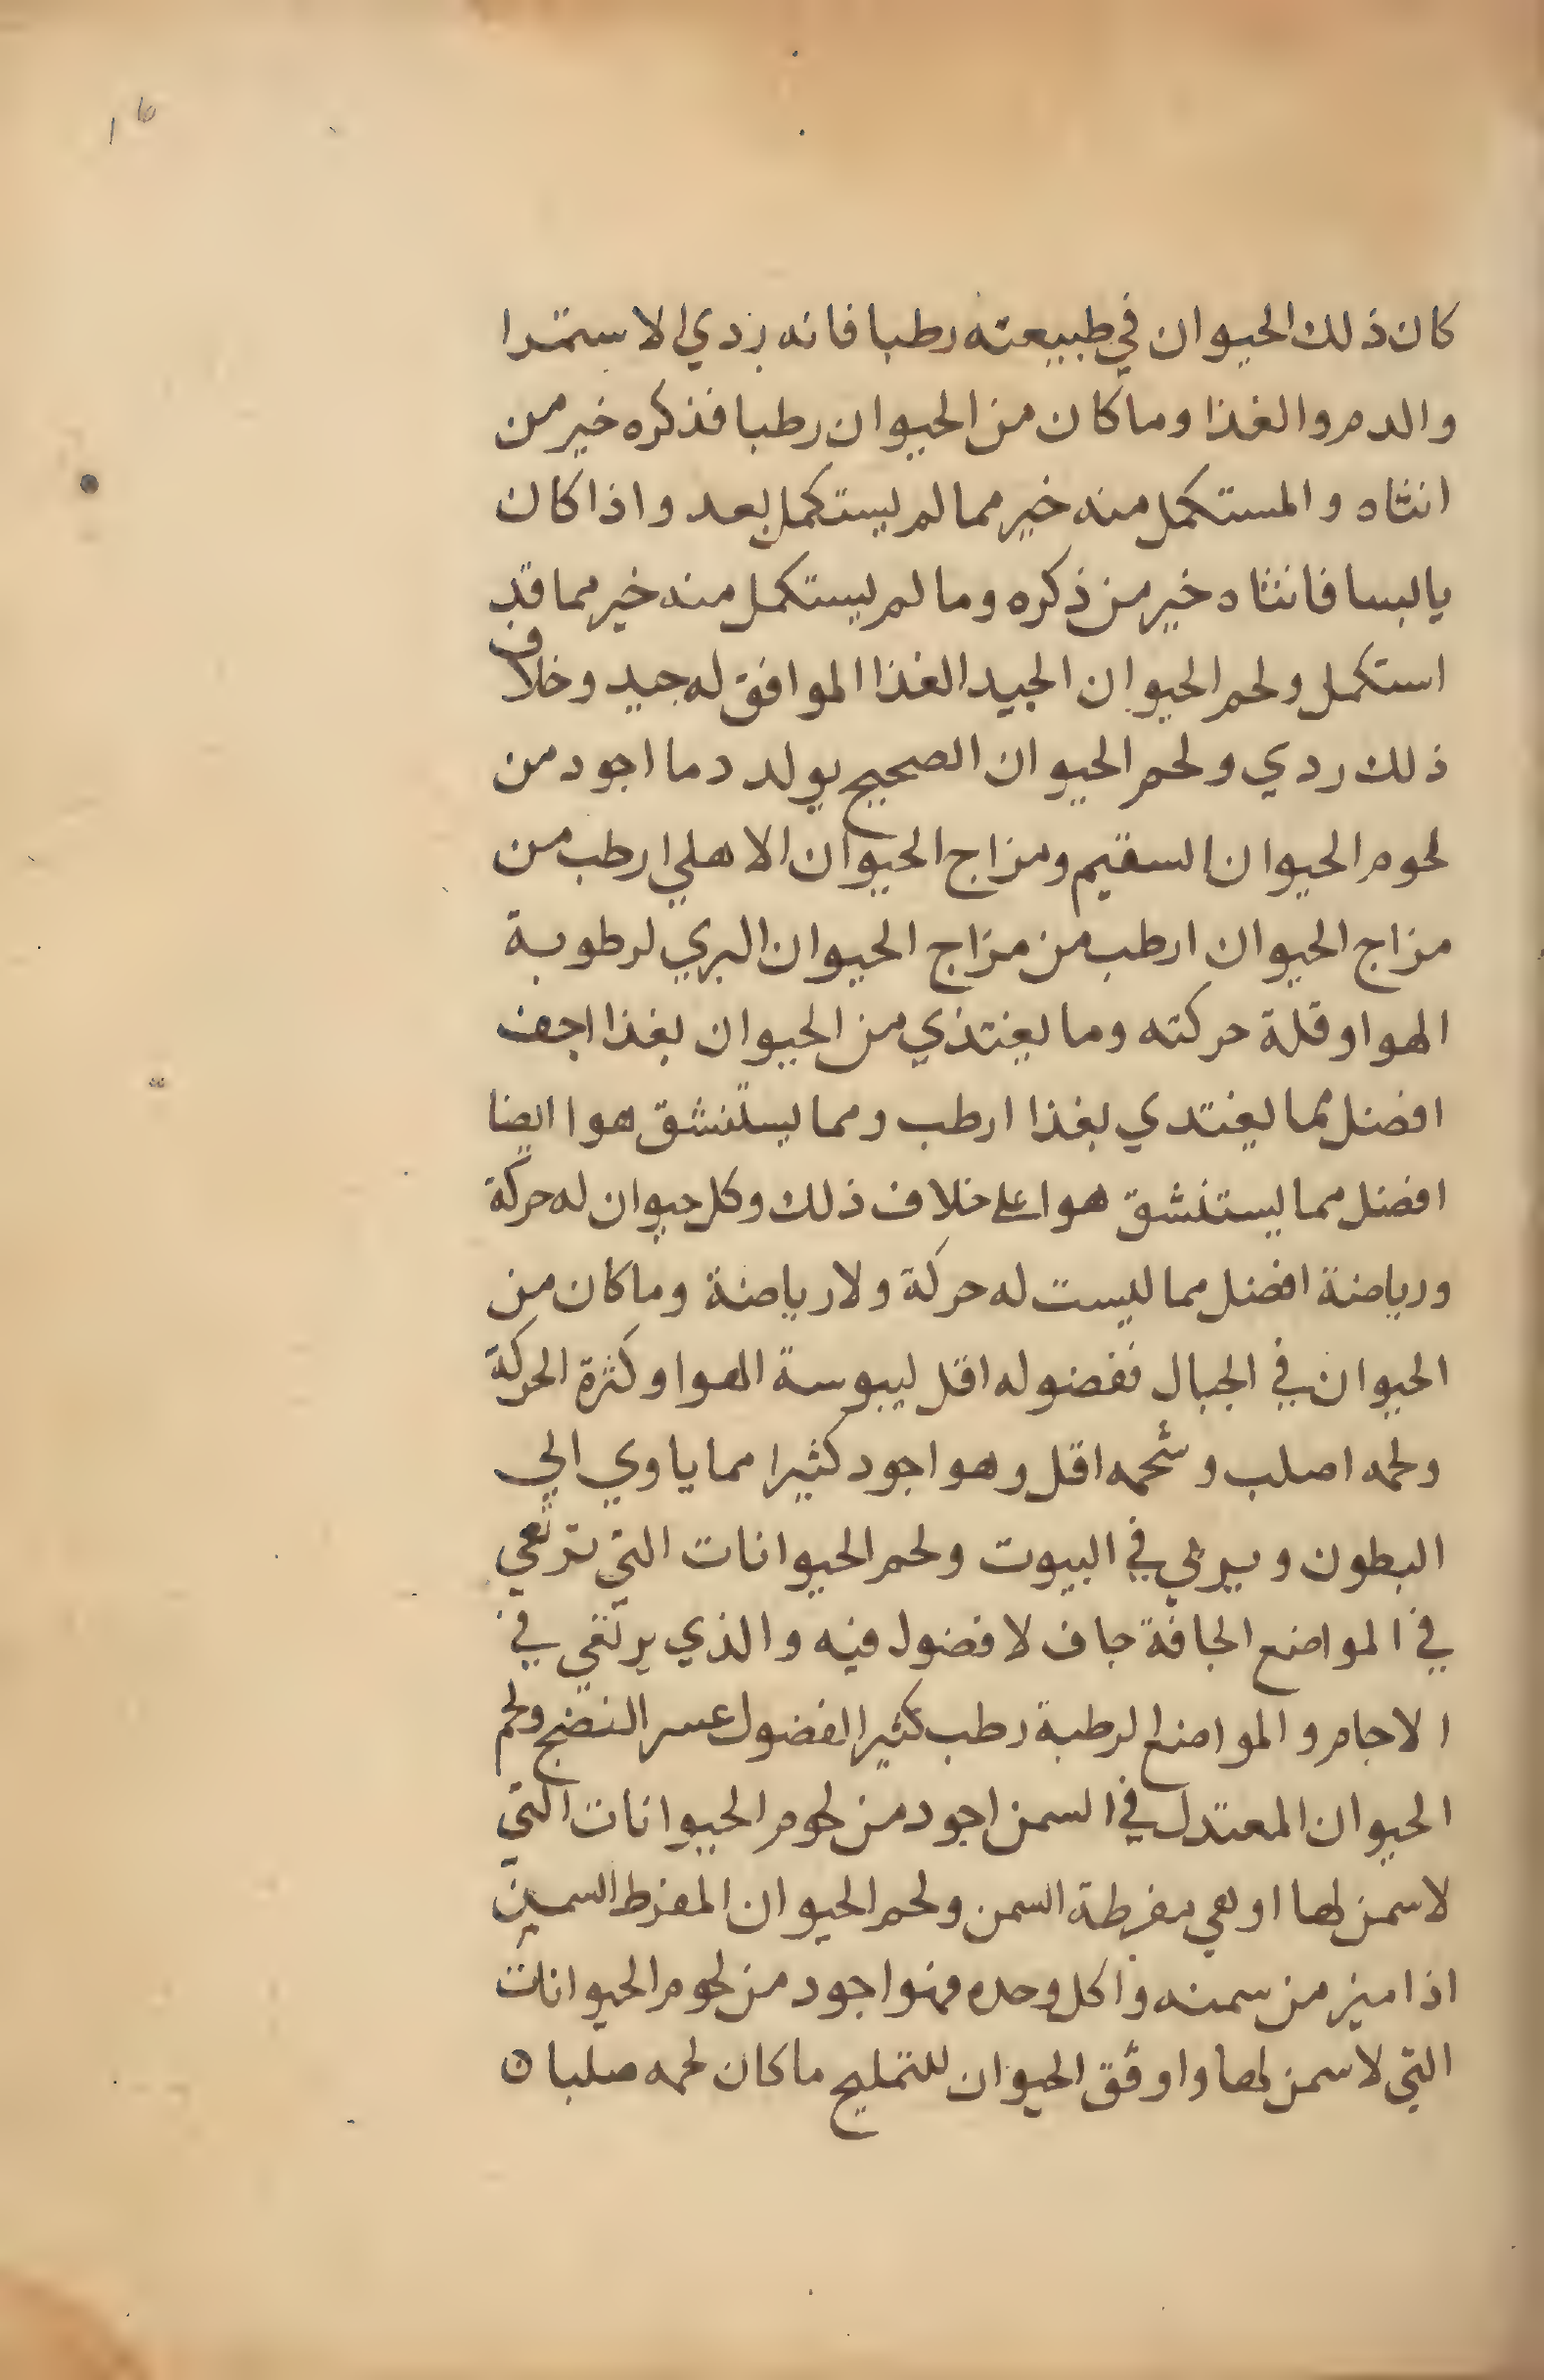 كان ذلك الحيوان في طبيعته رطبا فانه ردي الاستمرا
والدم والغذا وما كان من الحيوان رطبا فذكره خير من
انثاه والمستكمل منه خير مما لم يستكمل بعد واذا كان
يابسا فانثاه خير من ذكره وما لم يستكمل منه خير مما قد
استكمل ولحم الحيوان الجيد الغذا الموافق له جيد وخلاف
ذلك ردي ولحم الحيوان الصحيح يولد دما اجود من
لحوم الحيوان السقيم ومزاج الحيوان الاهلي ارطب من
مزاج الحيوان ارطب من مزاج الحيوان البري لرطوبة
الهوا وقلة حركته وما يغتذي من الحيوان بغذا اجف
افضل مما يغتدي بغذا ارطب ومما يستنشق هوا ايضا
افضل مما يستنشق هوا على خلاف ذلك وكل حيوان له حركة
ورياضة افضل مما ليست له حركة ولا رياضة وما كان من
الحيوان في الجبال ففضوله اقل ليبوسة الهوا وكثرة الحركة
ولحمه اصلب وشحمه اقل وهو اجود كثيرا مما ياوي الي
البطون ويربي في البيوت ولحم الحيوانات التي ترتعي
في المواضع الجافة جاف لا فضول فيه والذي يرتقي في
الاجام والمواضع الرطبة رطب كثير الفضول عسر النضج ولحم
الحيوان المعتدل في السمن اجود من لحوم الحيوانات التي
لا سمن لها او هي مفرطة السمن ولحم الحيوان المفرط السمين
اذا ميز من سمنه واكل وحده فهو اجود من لحوم الحيوانات
التي لا سمن لها واوفق الحيوان للتمليح ما كان لحمه صلبا ن